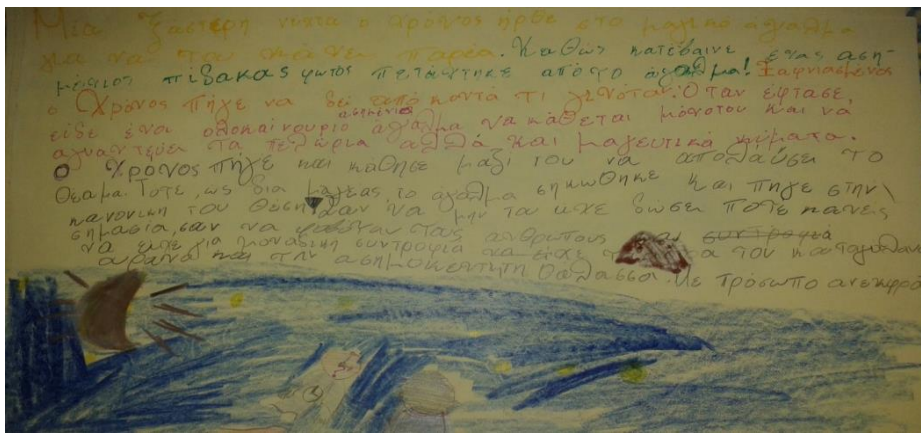 Μια ξάστερη νύχτα ο Χρόνος ήρθε στο μαγικό άγαλμα
για να του κάνει παρέα. Καθώς κατέβαινε ένας αση-
μένιος πίδακας φωτός πετάχτηκε από το άγαλμα! Ξαφνιασμένος
ο Χρόνος πήγε να δει από κοντά τι γινόταν. Όταν έφτασε,
είδε ένα ολοκαίνουριο ασημένιο άγαλμα να κάθεται μόνο του και να
αγναντεύει τα πελώρια αλλά και μαγευτικά κύματα.
Ο Χρόνος πήγε και κάθησε μαζί του να απολαύσει το
θέαμα. Τότε, ως δια μαγείας το άγαλμα σηκώθηκε και πήγε στην
κανονική του θέση. Σαν να μην του είχε δώσει ποτέ κανείς
σημασία, σαν να τους ανθρώπους συντροφιά
να είχε για μοναδική συντροφιά να είχε τον καταγάλανο
ουρανό και την ασημοκέντητη θάλασσα. Με πρόσωπο ανέκφρα